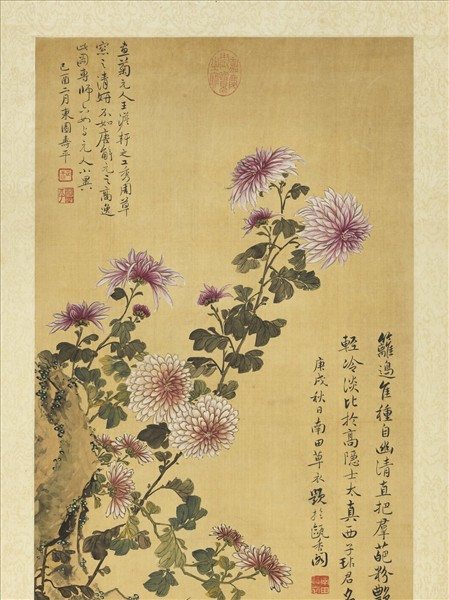 畫菊元人王澹軒之工秀周草
窓之清妍不如唐解元之高逸
此圖專師六如与元人小異
己酉二月東園壽平
籬邊佳種自幽清直把羣葩粉艷
輕冷淡比於高隱士太真西子玷君名
庚戌秋日南田草衣題於甌香閣